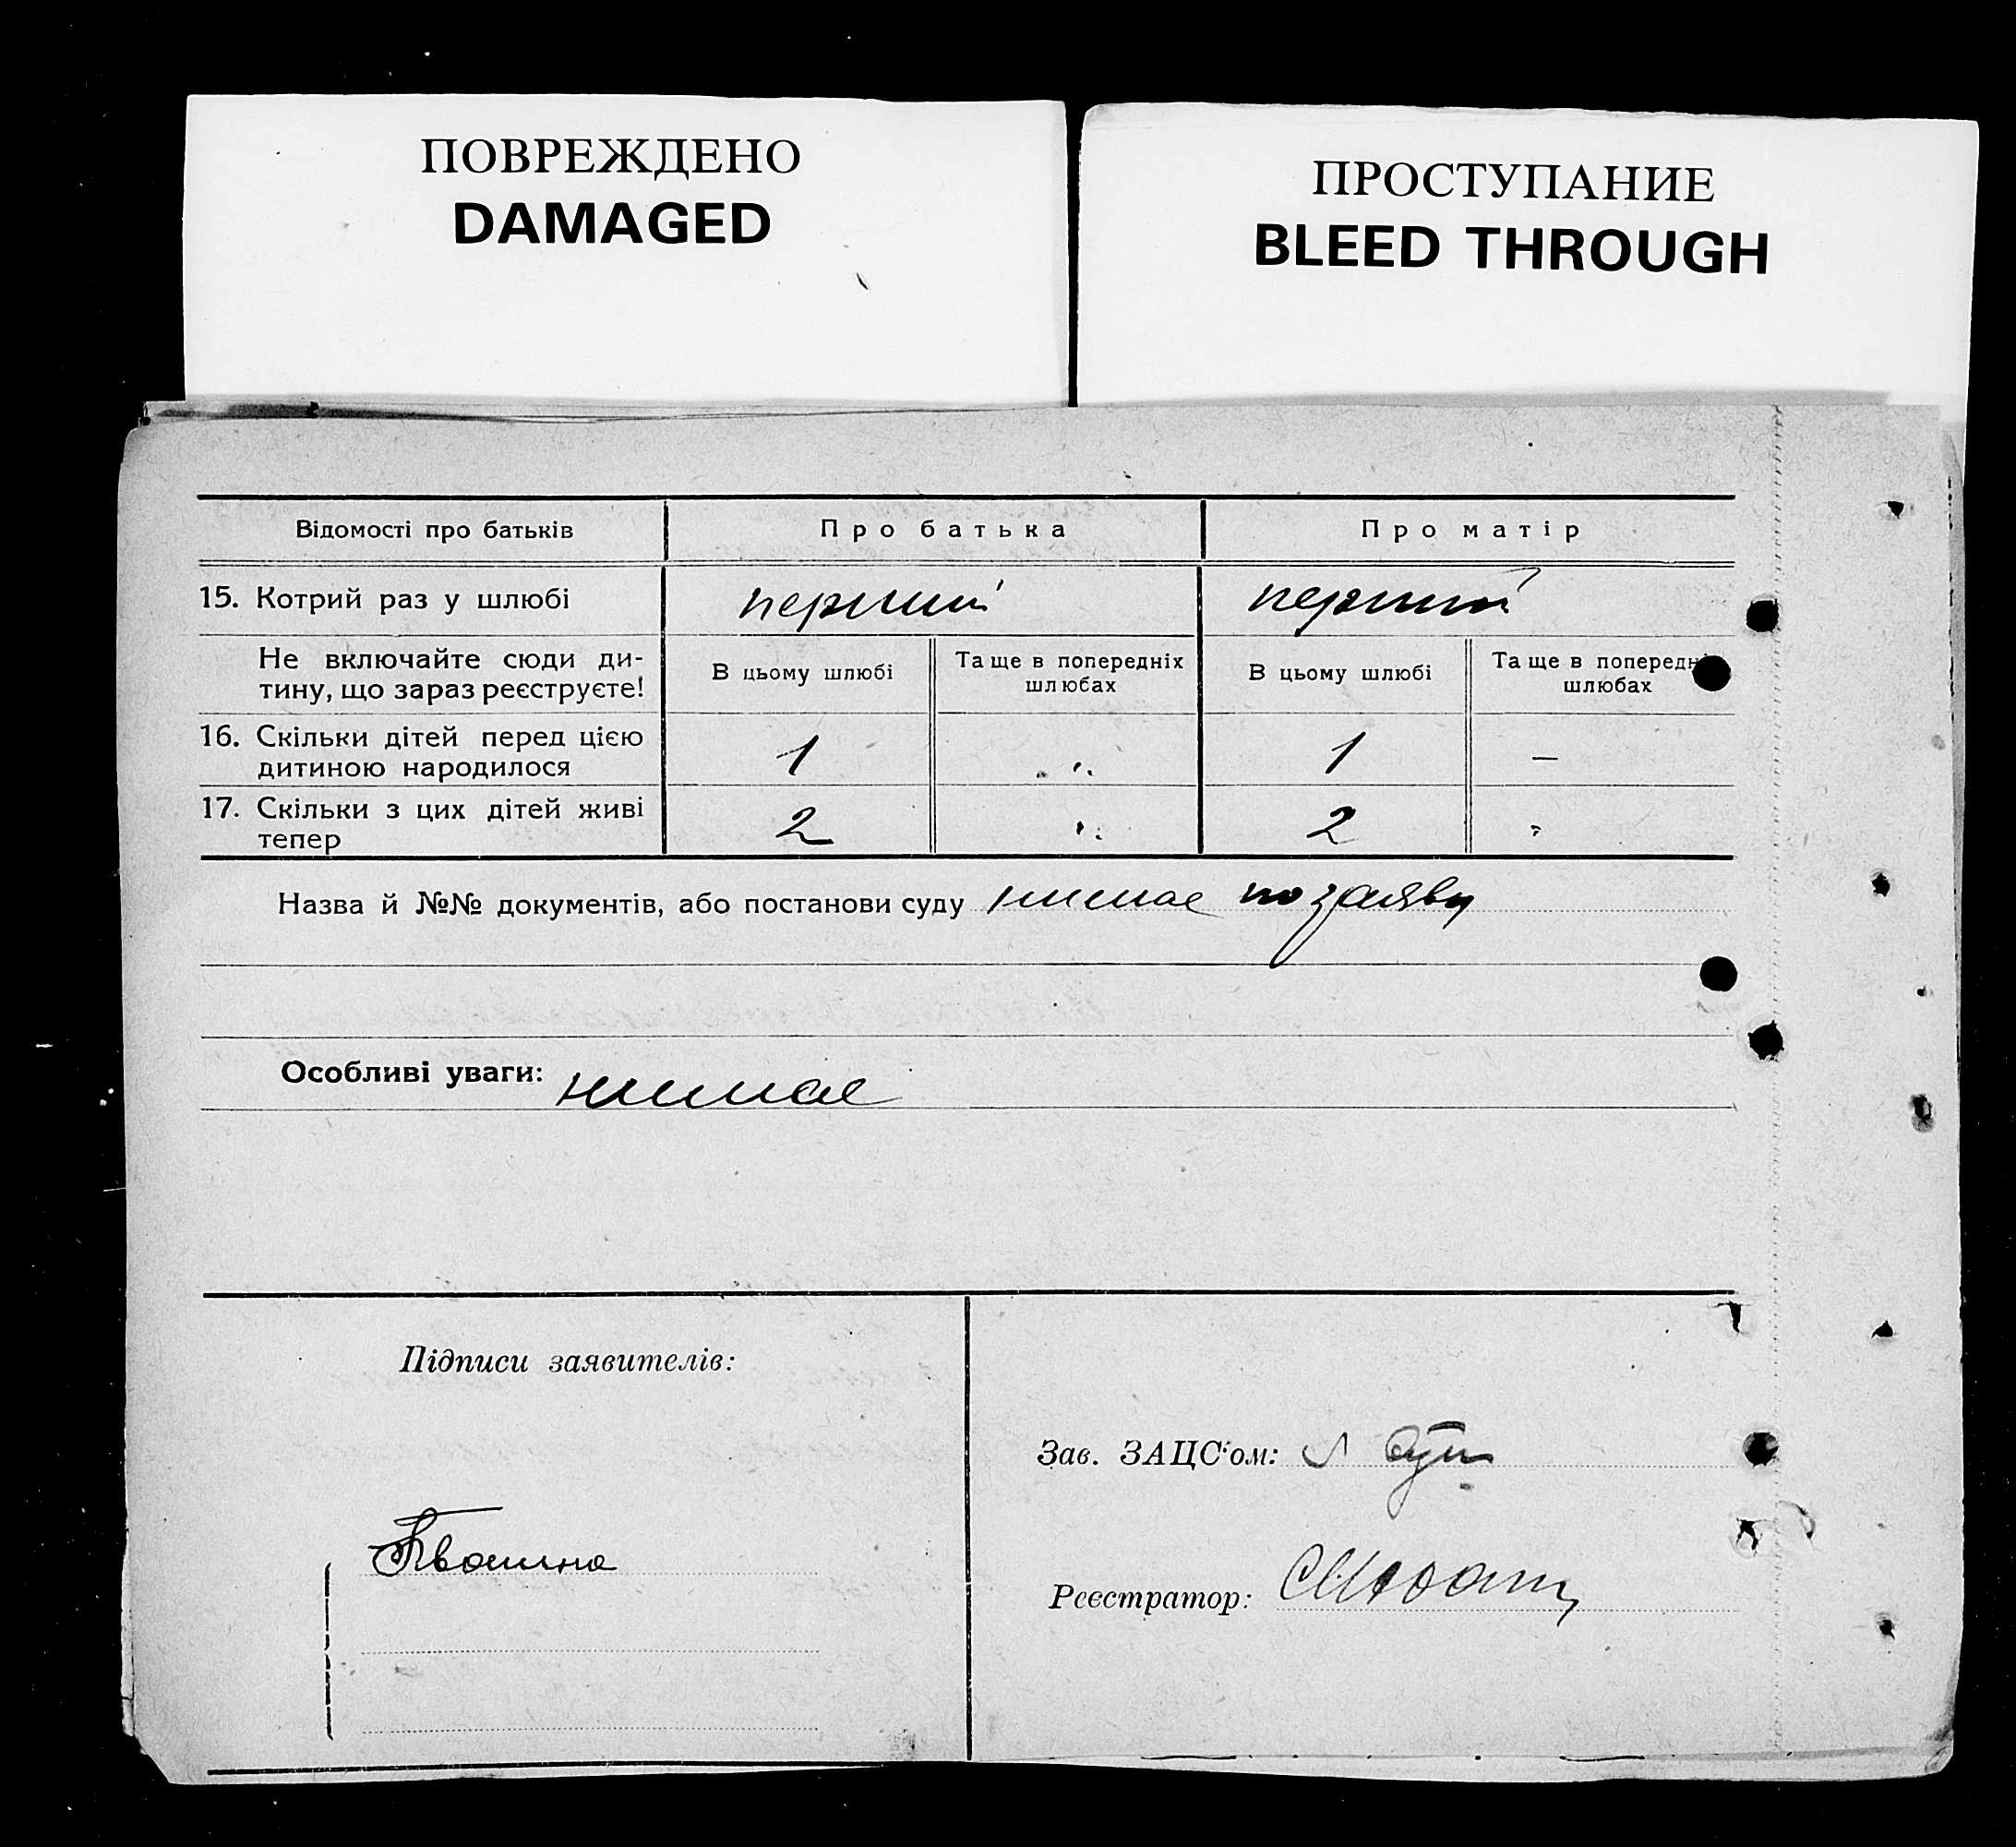 ПОВРЕЖДЕНО
DAMAGED
ПРОСТУПАНИЕ
BLEED THROUGH
Відомості про батьків Про батька Про матір
15. Котрий раз у шлюбі перший перший
Не включайте сюди ди-
тину, що зараз реєструєте!
В цьому шлюбі
Та ще в попередніх
шлюбах
В цьому шлюбі
Та ще в попередн
шлюбах
16. Скільки дітей перед цією
дитиною народилося
1 1 —
17. Скільки з цих дітей живі
тепер
2 2
Назва й №№ документів, або постанови суду нимає по заяви
Особливі уваги: нимає
Підписи заявителів:
Зав. ЗАЦС'ом:
Реєстратор: